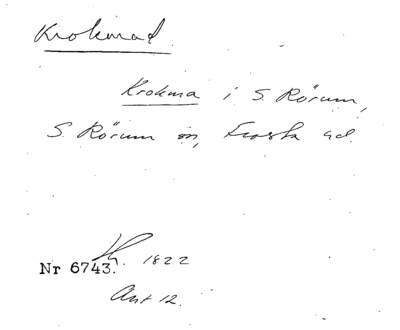 Krokmad.
Krokma i S. Rörum,
S. Rörum sn, Frosta hd.
Nr 6743. 1822
Ant 12.